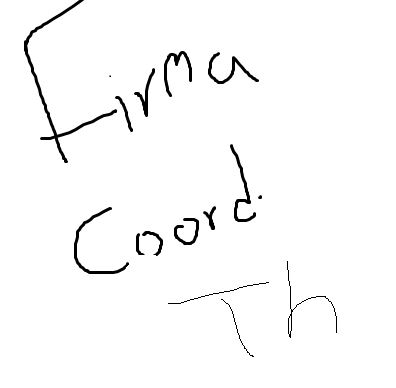 Firma
Coord.
Th